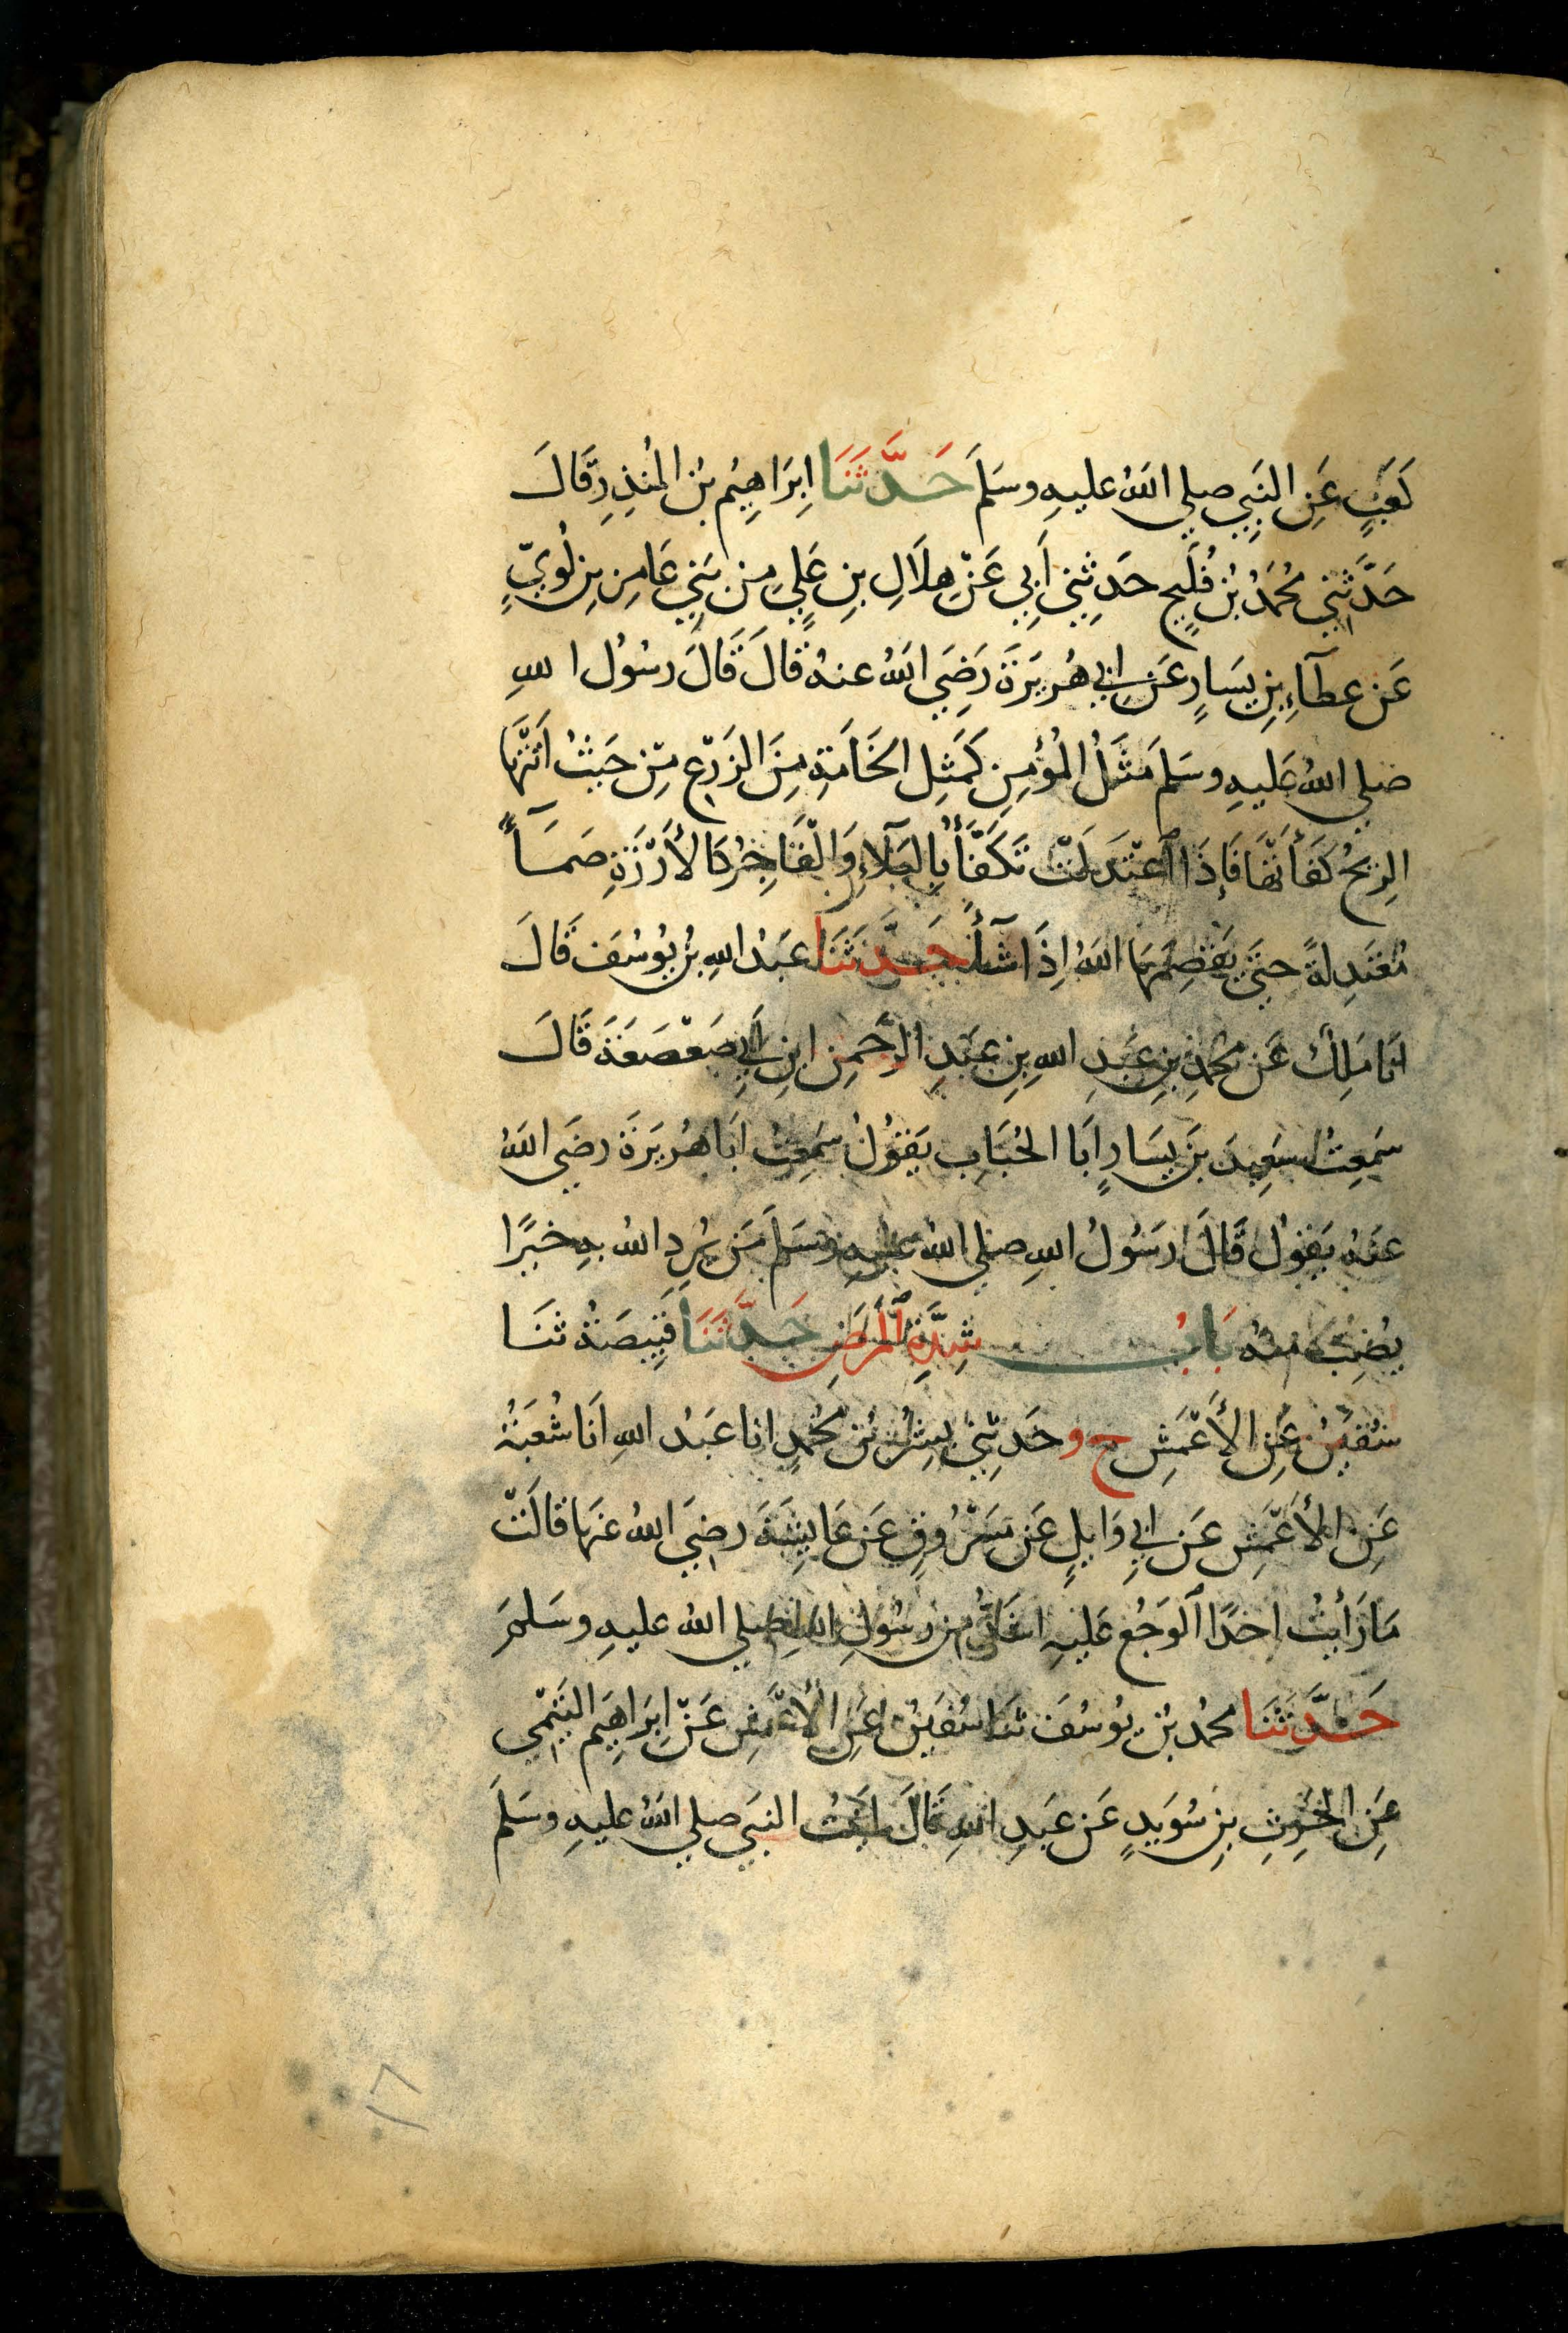 كَعْبٍ عَنِ النَّبِيِّ صلى اللهُ عليهِ وسَلمَ حَدَّثَنَا اِبْرَاهِيْم بْنُ المُنْذِرِ قَالَ
حَدَّثَنِي مُحَمَّدُ بْنُ فُلَيْحٍ حَدثَنِي أَبِي عَنْ هِلَالِ بْنِ عَلِيٍ مِنْ بَنِي عَامِرِ بْنِ لُوَيٍّ
عَن عطآءِ بْنِ يَسَارٍ عَن ابِي هُرَيْرَةَ رَضِيَ اللهُ عنهُ قَالَ قَالَ رسُولُ اللهِ
صلى اللهُ عَليهِ وسَلمَ مَثَلُ الْمُؤْمِنِ كَمَثَلِ الخَامَةِ مِنَ الزَرْعِ مِنْ حَيْثُ أَتَتْهَا
الرِيحُ كَفَأَتْهَا فَإِذَا اعْتَدَلَتْ تَكَفَّأُ بِالْبَلآءِ وَالْفَاجِرُ كَالأَرْزَةِ صَمَّآءً
مُعْتَدِلةً حتَى يَقْصِمَهَا اللهُ اِذَا شآءَ حَدَّثَنَا عَبْدُ اللهِ بْنُ يُوسُفَ قَالَ
انَا مَلِكٌ عَن محمَّدِ بْنِ عَبْدِ اللهِ بْنِ عَبْدِ الرَّحمنِ ابنِ أَبِي صَعْصَعَةَ قَالَ
سَمِعتُ سَعِيدَ بْنَ يَسَارٍ اَبَا الحُبَابِ يَقُولُ سَمِعتُ ابَا هُرَيْرَةَ رضَى اللهُ
عَنْهُ يَقُولُ قَالَ رَسُولُ اللهِ صلى اللهُ عليهِ وسَلمَ مَن يُرِدِ اللهُ بهِ خَيْرًا
يُصِبْ منهُ بَابُ شِدَّةِ الْمَرَضِ حَدَّثَنَا قَبِيصَةُ ثنَا
سُفْيٰنُ عَنِ الأَعْمَشِ ح و حَدثَنِي بِشْرُ بْنُ مُحَمدٍ انا عَبْدُ اللهِ اَنَا شُعْبَةُ
عَنِ الأعْمَشِ عَن ابِي وَايِلٍ عَن مَسْرُوقٍ عَن عَايِشَةَ رضِيَ اللهُ عَنهَا قَالَتْ
مَا رَأَيْتُ اَحَدًا الْوَجَعُ عَليْهِ اشَدُّ مِن رسُولِ اللهِ صلى اللهُ عليهِ وسَلمَ
حَدَّثَنَا محمدُ بْنُ يُوسُفَ ثنَا سُفْيٰنُ عَنِ الأعْمَشِ عَنْ اِبرَاهِيم التَّيْمِي
عَنِ الحٰرِثِ بْنِ سُوَيْدٍ عَن عَبْدِ اللهِ قَالَ اتَيْتُ النَّبِيَّ صلى اللهُ عليهِ وسَلمَ
١٦